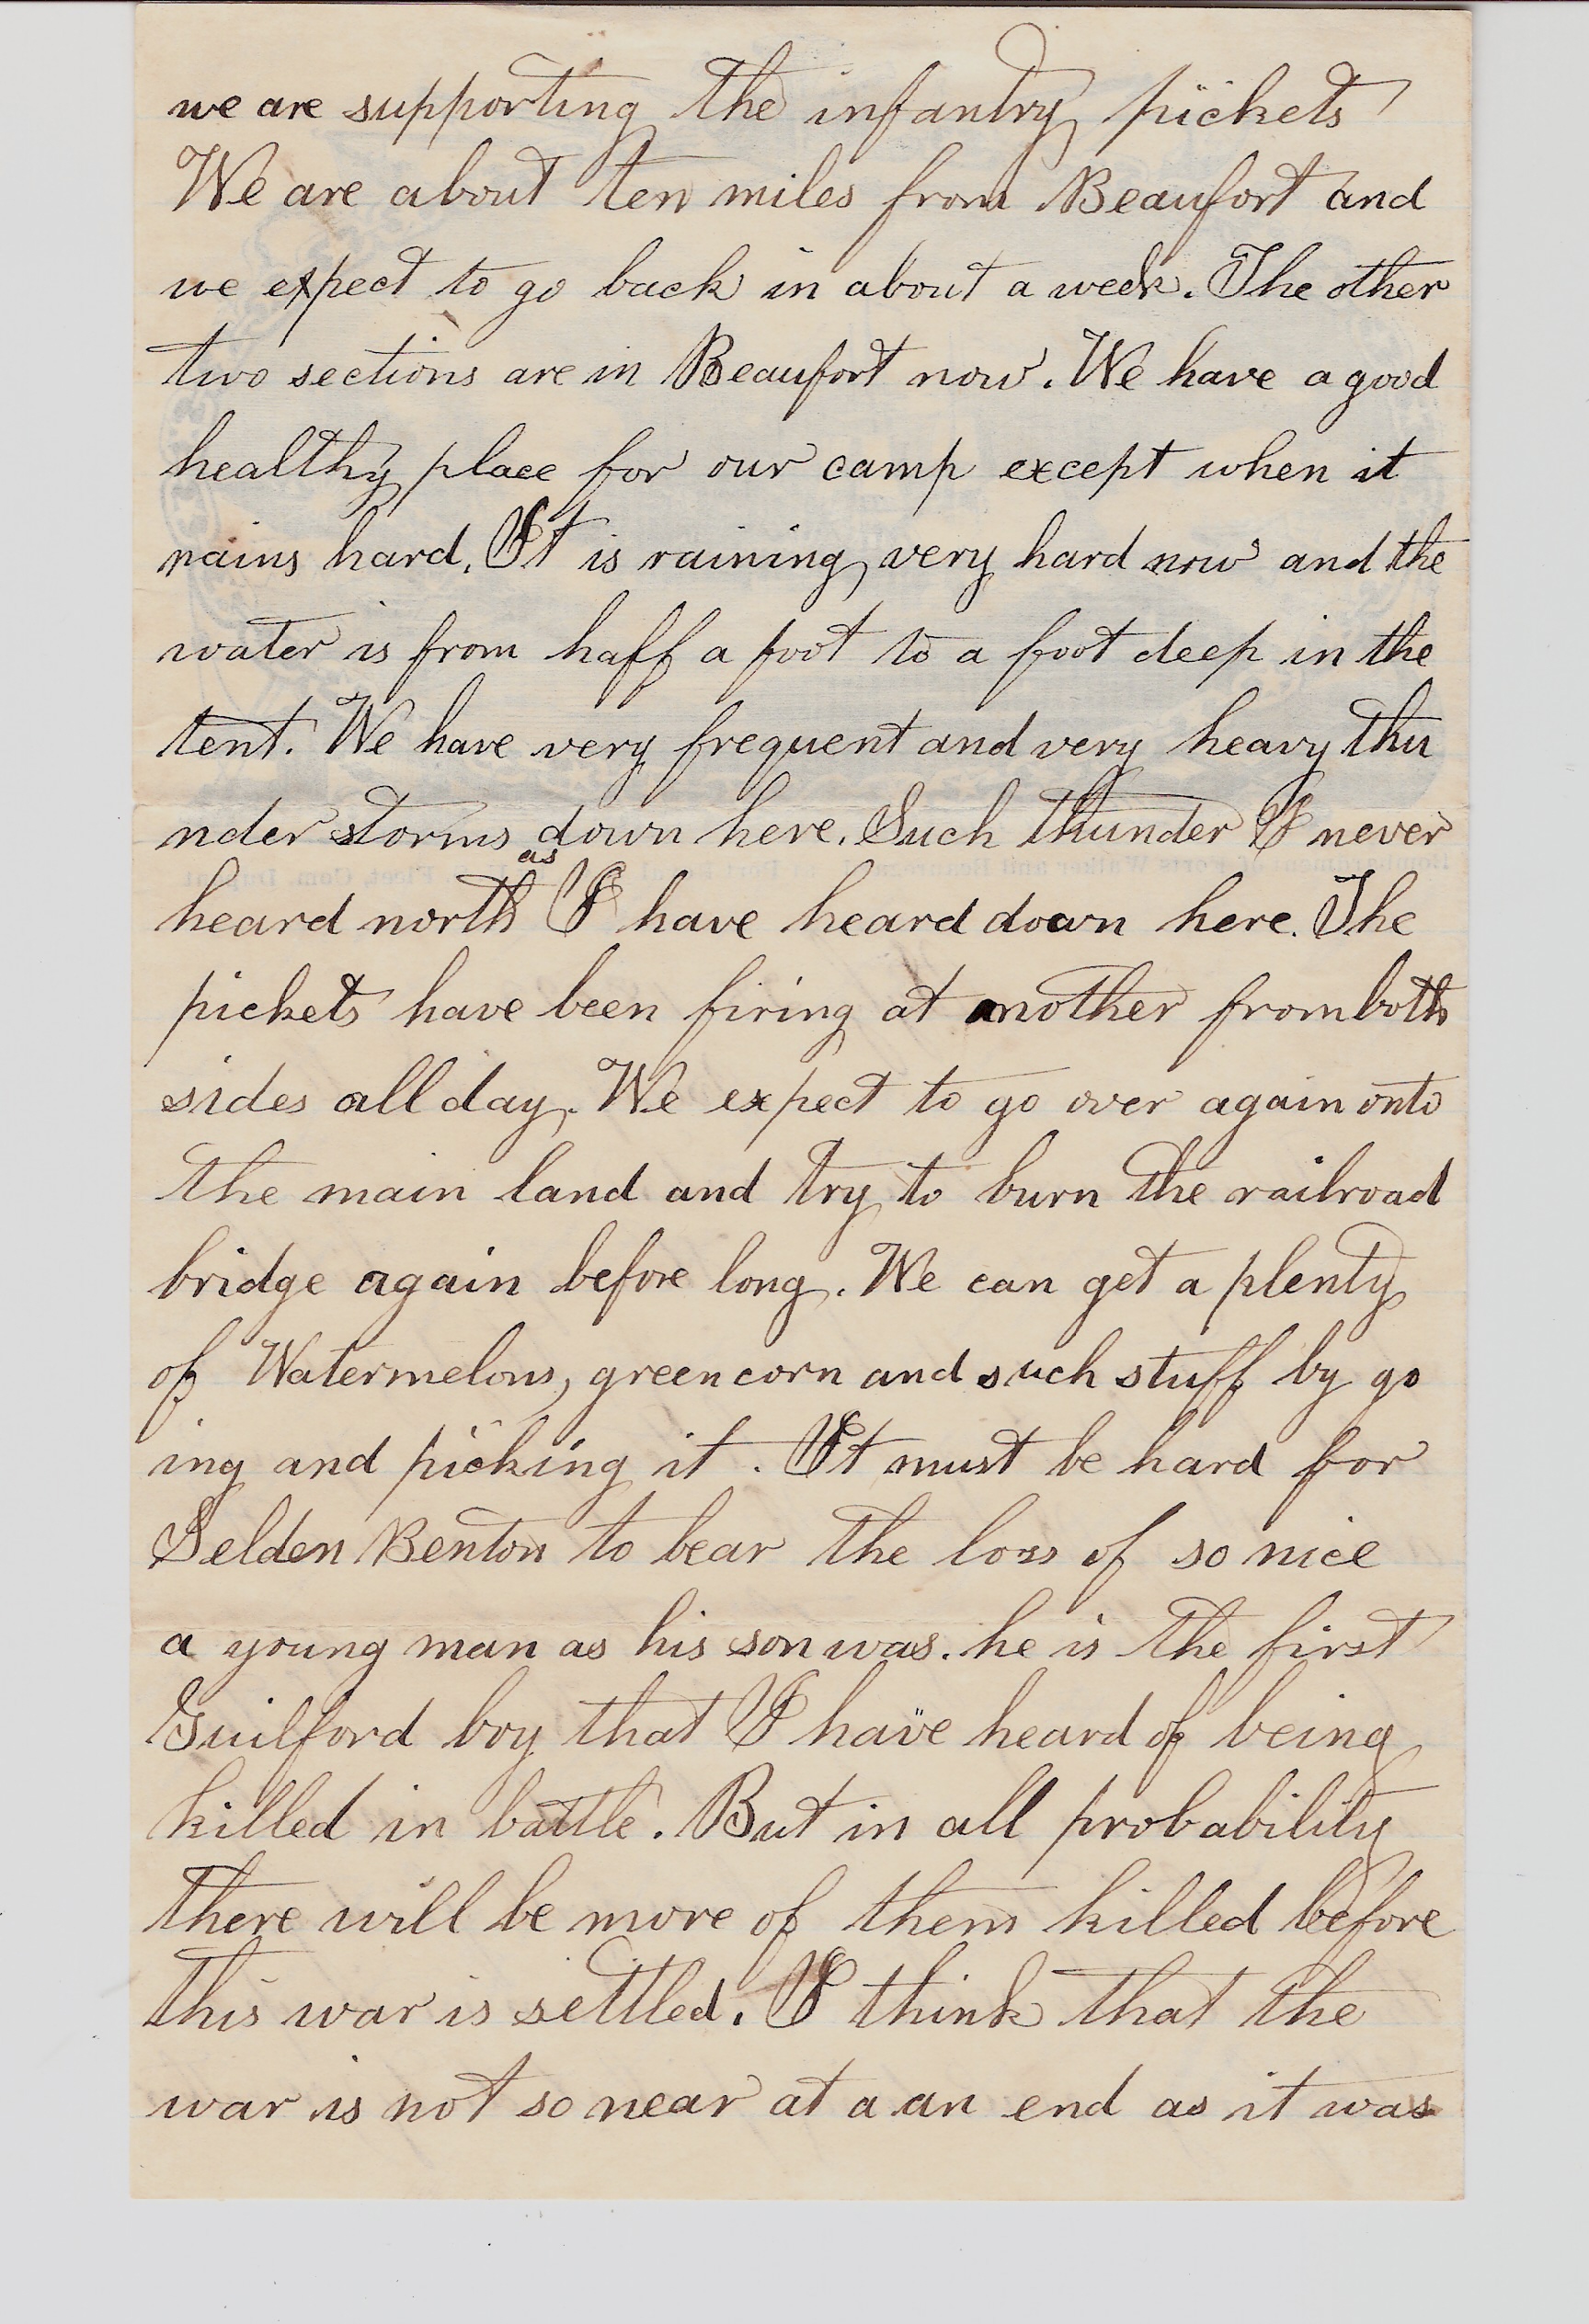 we are supporting the infantry pickets
We are about ten miles from Beaufort and
we expect to go back in about a week. The other
two sections are in Beaufort now. We have a good
healthy place for our camp except when it
rains hard. It is raining very hard now and the
water is from haff a foot to a foot deep in the
tent. We have very frequent and very heavy thu
nder storms down here. Such thunder I never
as
heard north I have heard down here. The
pickets have been firing at another from both
sides all day. We expect to go over again onto
the main land and try to burn the railroad
bridge again before long. We can get a plenty
of Watermelons, green corn and such stuff by go
ing and picking it. It must be hard for
Selden Benton to bear the loss of so nice
a young man as his son was. he is the first
Guilford boy that I have heard of being
killed in battle. But in all probability
there will be more of them killed before
this war is settled. I think that the
war is not so near at a an end as it was